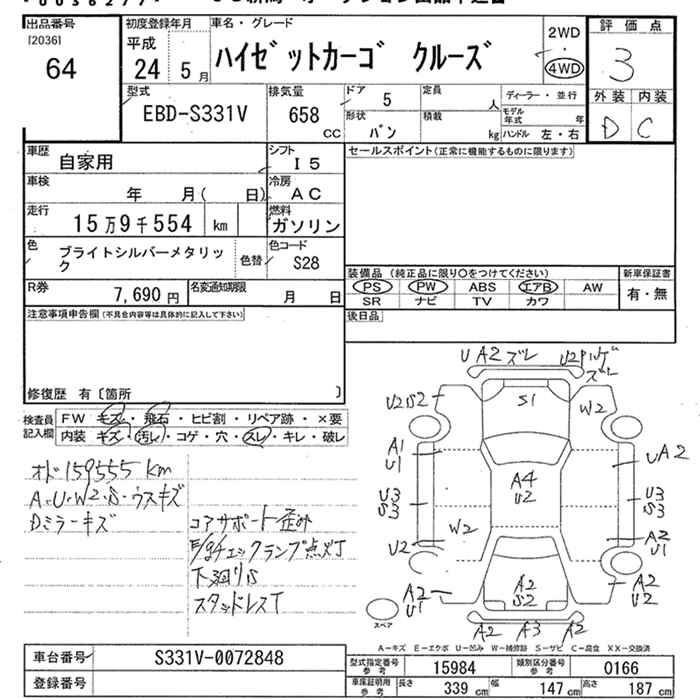 出品番号 初度登録年月 車名・グレード 評価点
[2036]
64 平成 24年 5月 ハイゼットカーゴ クルーズ 2WD 4WD 3
型式 排気量 ドア 5 定員 人 ディーラー・並行 外装 内装
EBD-S331V 658 CC 形状 バン 積載 kg モデル年式 年 ハンドル 左・右 D C
車歴 自家用 シフト I5 セールスポイント(正常に機能するものに限ります)
車検 年 月( 日) 冷房 AC
走行 15万9千554 km 燃料 ガソリン
色 ブライトシルバーメタリック 色替 色コード S28
装備品 (純正品に限り○をつけてください) 新車保証書
R券 7,690円 名変通知期限 月 日 PS PW ABS エアB AW 有・無
SR ナビ TV カワ
注意事項申告欄(不具合内容等は具体的に記入して下さい) 後日品
修復歴 有〔箇所 〕
検査員記入欄 FW キズ・飛石・ヒビ割・リペア跡・×要
内装 キズ・汚レ・コゲ・穴・スレ・キレ・破レ
オド159555km
A・U・W2・S・ウスキズ
Dミラーキズ
コアサポート歪
E/gチェックランプ点灯
下廻りS
スタッドレスT
UA2ズレ
ズレ
U2S2 S1 W2
A1 U1 UA2
A4 U2
U3 S3 U3 S3
W2
U2 A2 U1
A2 U1 A2 S2 A2 U2
スペア
A2 A3 A2
A-キズ E-エクボ U-凹み W-補修跡 S-サビ C-腐食 XX-交換済
車台番号 S331V-0072848
登録番号
型式指定番号 参考 15984 類別区分番号 参考 0166
車庫証明用 参考 長さ 339cm 幅 147cm 高さ 187cm